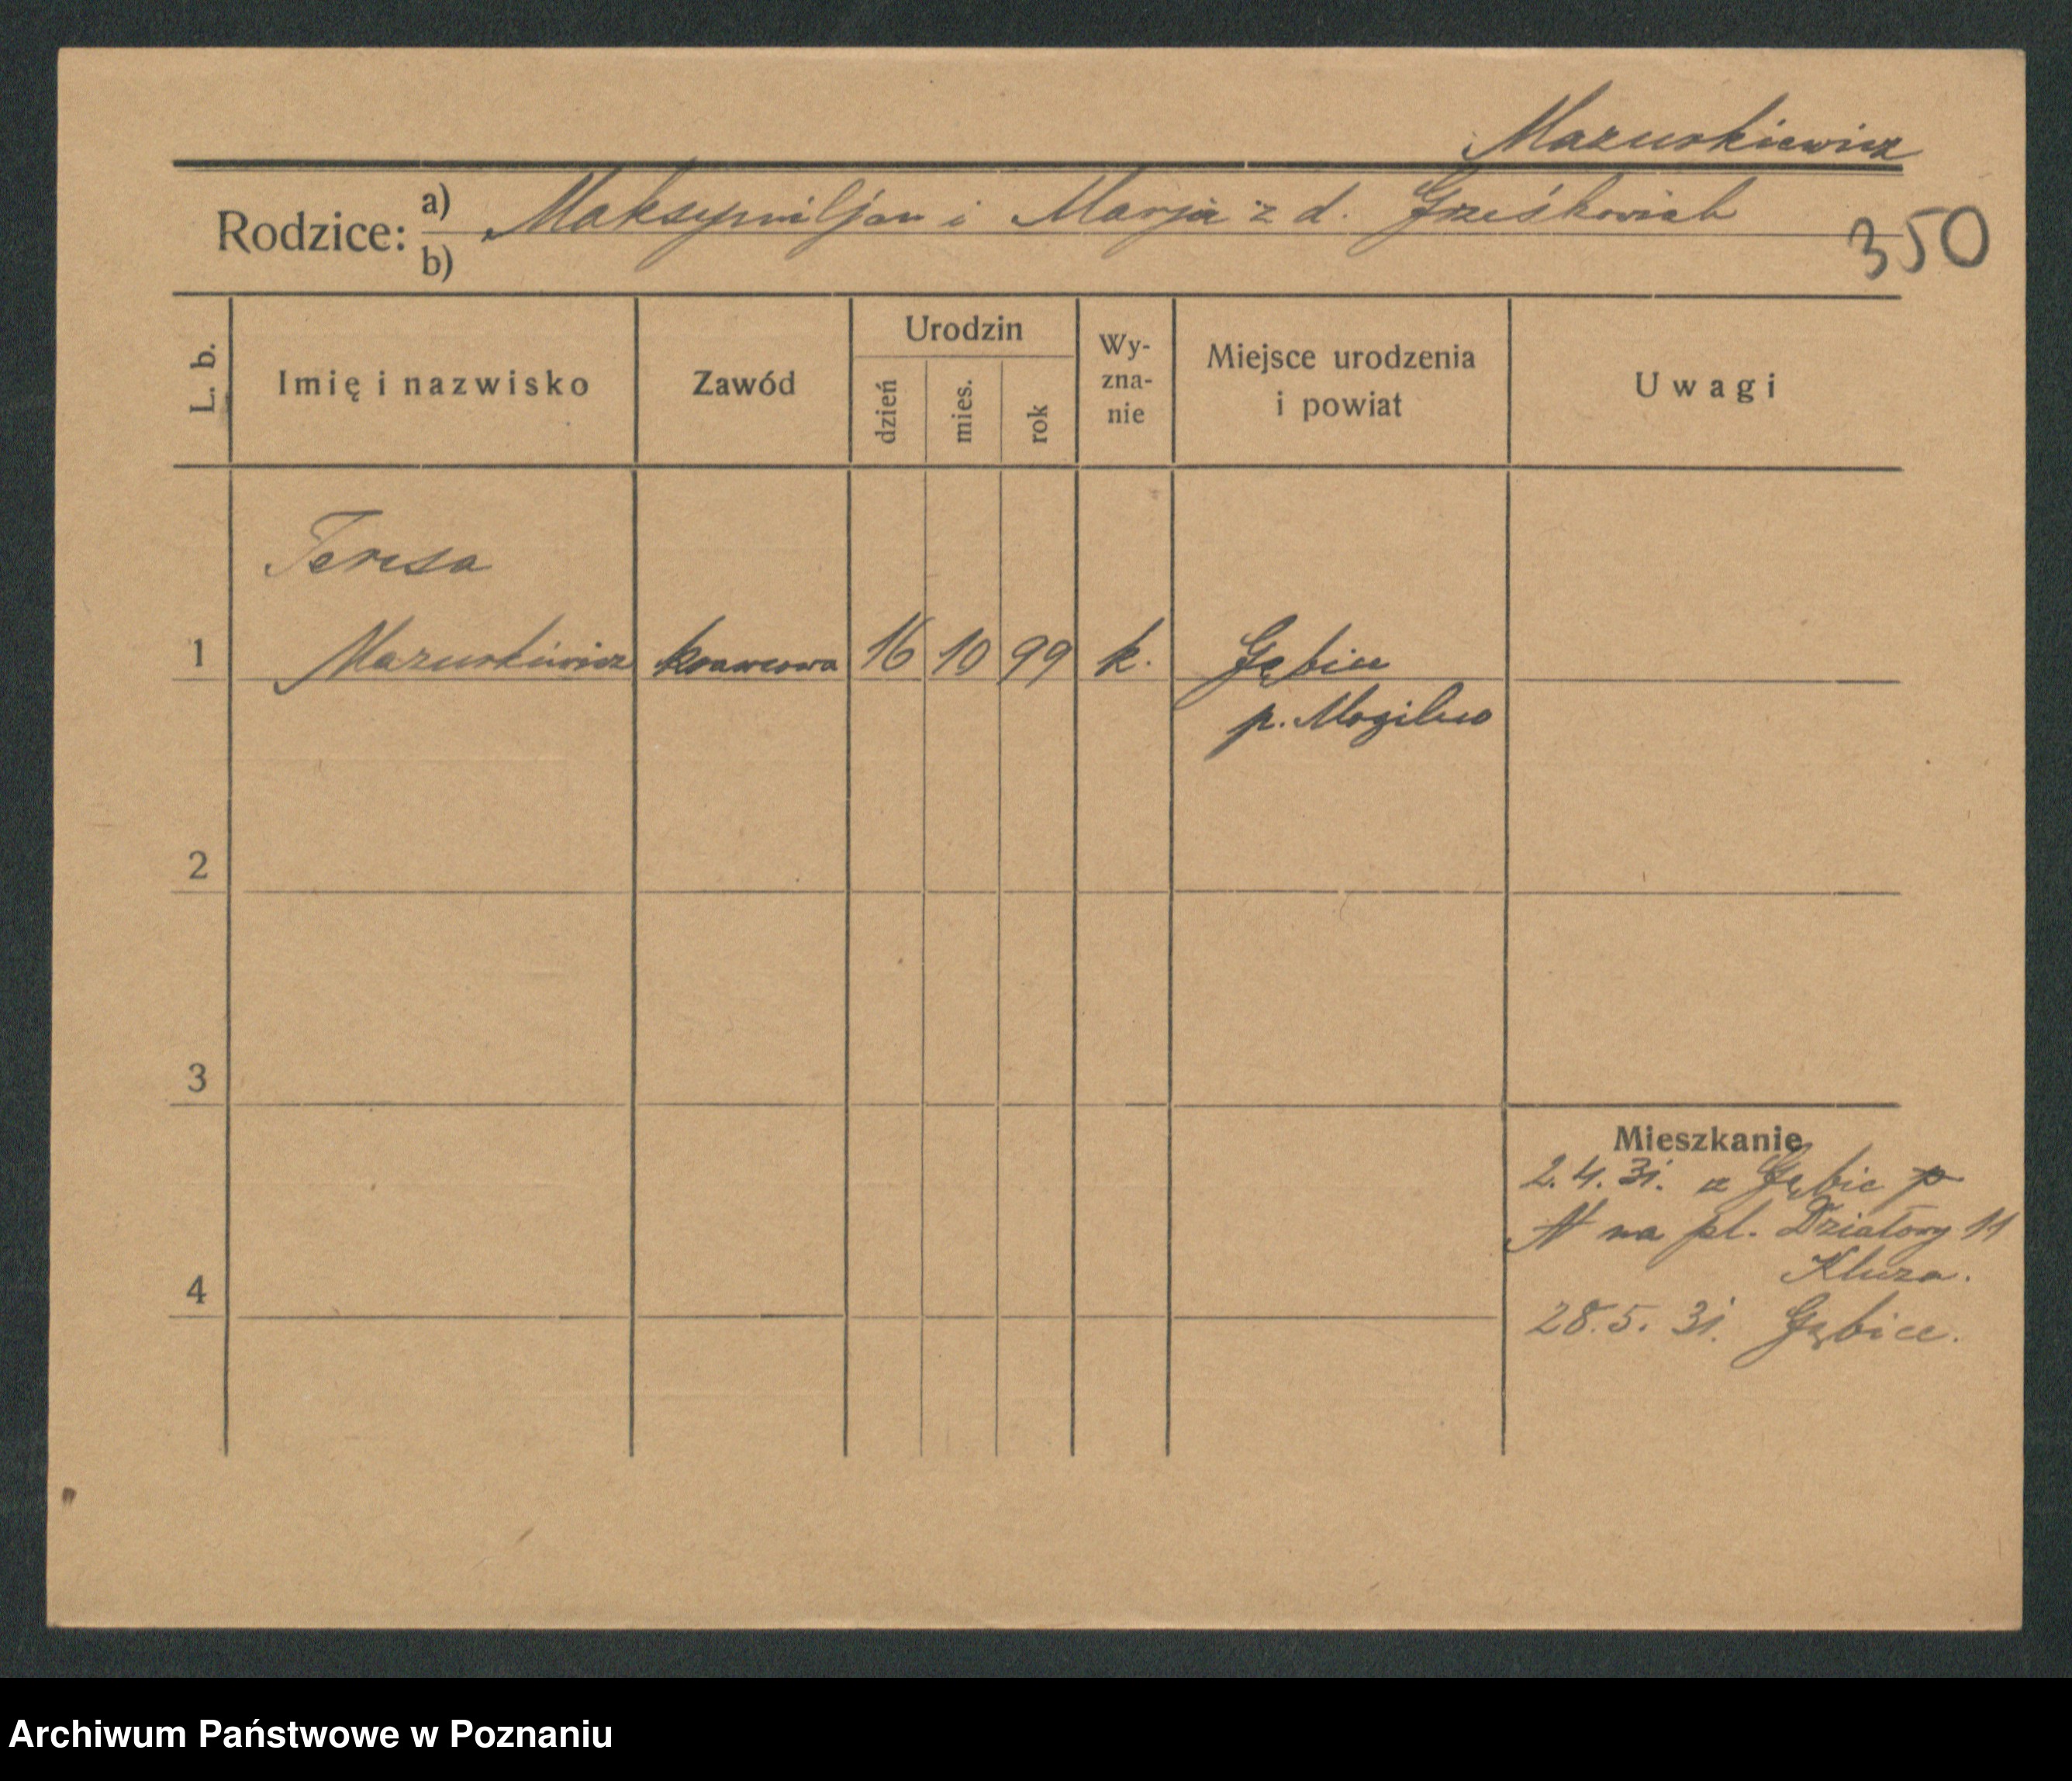 Mazurkiewicz
Rodzice: a) Maksymiljan i Marja z d. Grześkowiak
b)
350
L. b.
Imię i nazwisko
Zawód
Urodzin
dzień
mies.
rok
Wy-
zna-
nie
Miejsce urodzenia
i powiat
Uwagi
Teresa
1 Mazurkiewicz krawcowa 16 10 99 k. Gębice
p. Mogilno
2
3
Mieszkanie
2.4.31. z Gębic p
na pl. Działowy 11
Kluza.
4
28.5.31. Gębice.
Archiwum Państwowe w Poznaniu